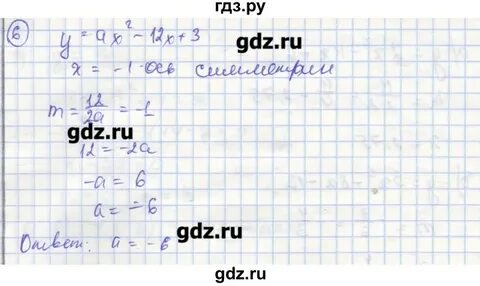 гдз.ру
6 y = ax² - 12x + 3
gdz.ru
x = -1 - ось симметрии
m = 12/2a = -1
gdz.ru
12 = -2a
-a = 6
gdz.ru
a = -6
Ответ: a = -6
gdz.ru
gdz.ru